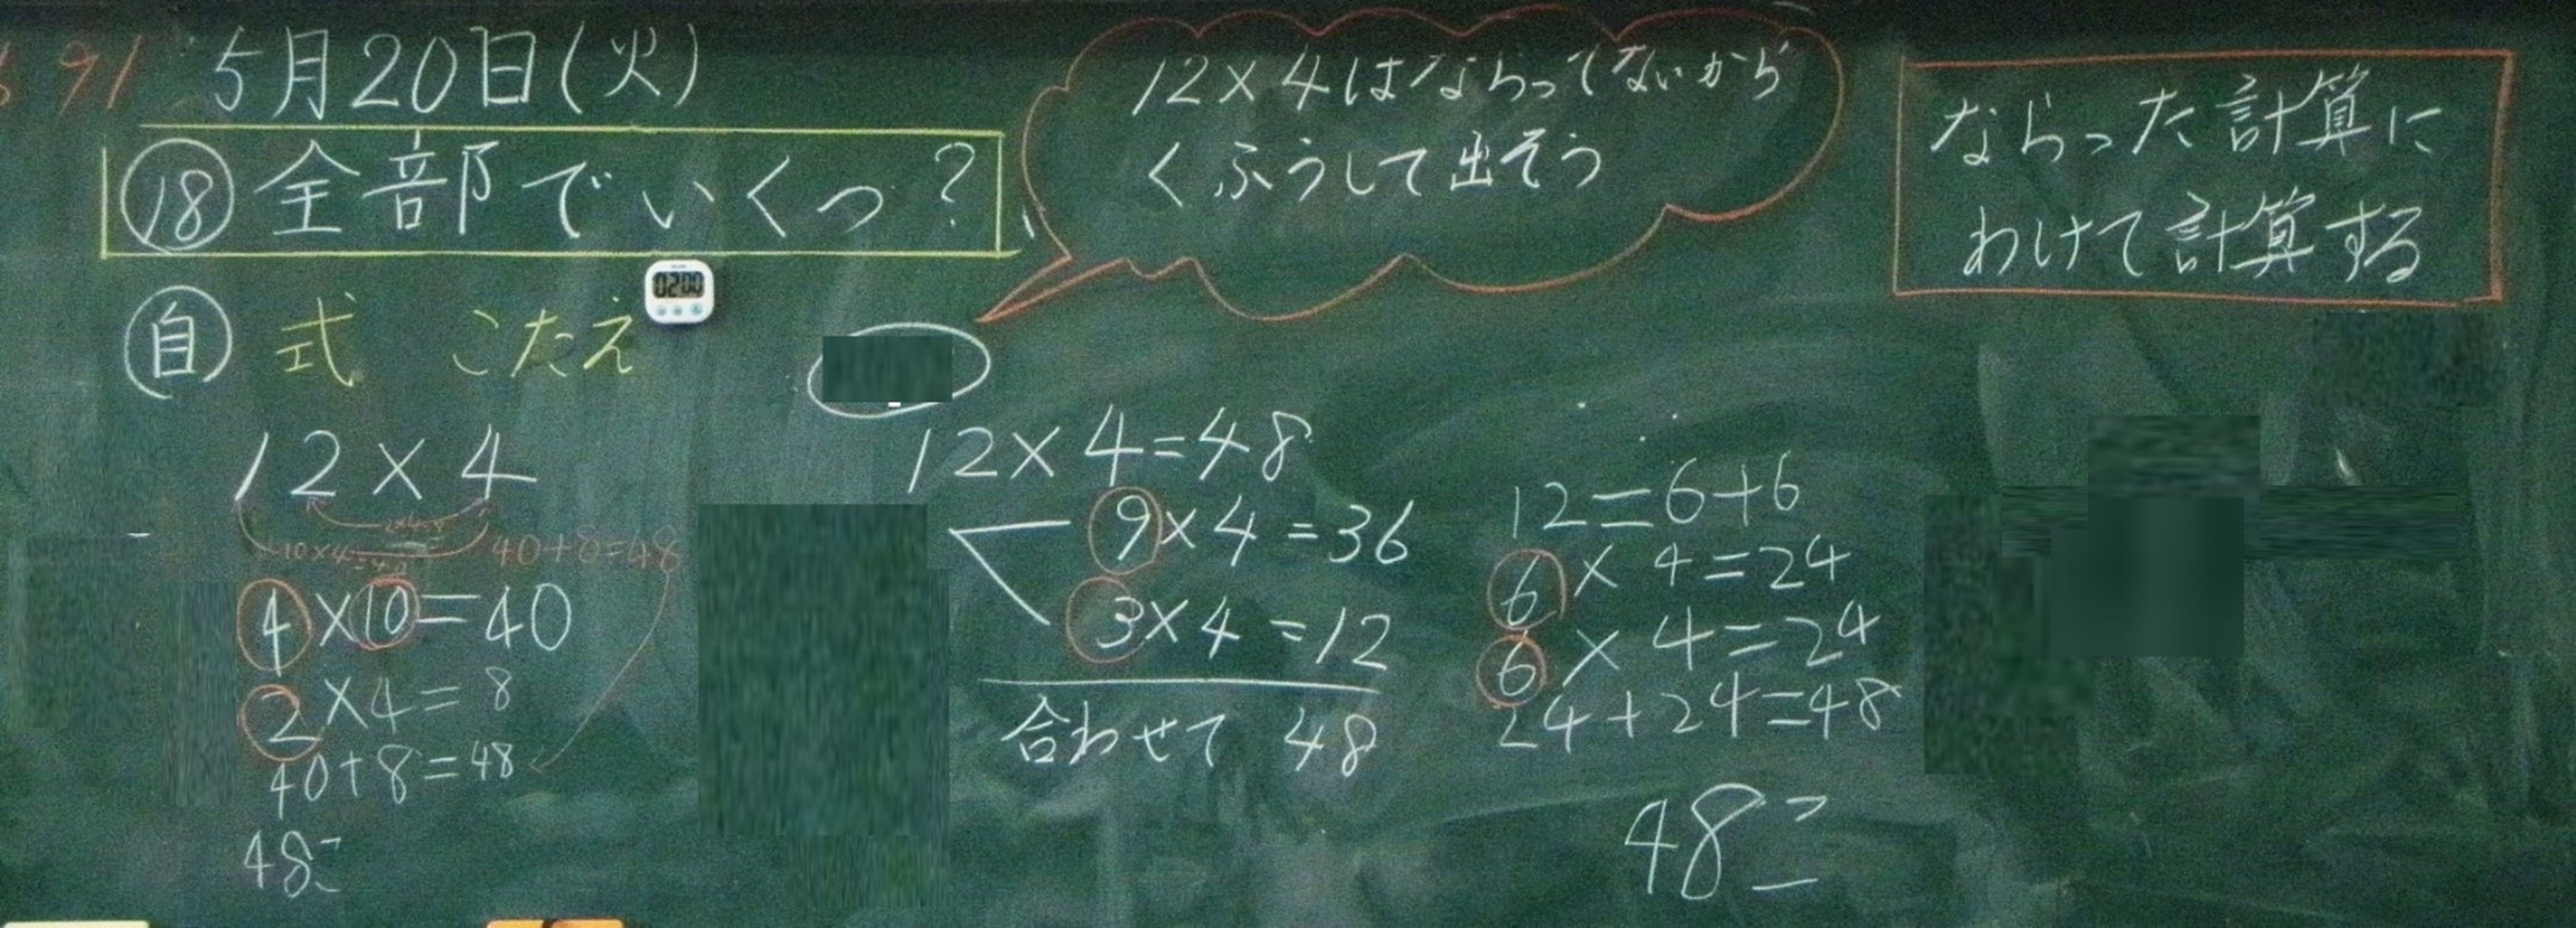 91
5月20日(火)
⑱ 全部でいくつ?
12×4はならってないから
くふうして出そう
ならった計算に
わけて計算する
0200
自 式 こたえ
12×4
10×4=40
40+8=48
4×10=40
2×4=8
40+8=48
48こ
12×4=48
9×4=36
3×4=12
合わせて 48
12=6+6
6×4=24
6×4=24
24+24=48
48こ